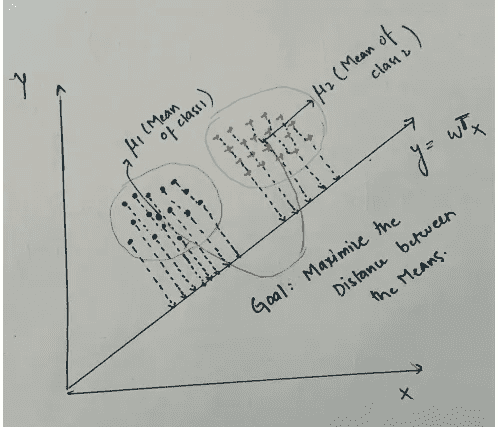 Y
μ1 (Mean
of class1)
μ2 (Mean of
class 2)
y = wᵀx
Goal: Maximise the
Distance between
the Means.
X